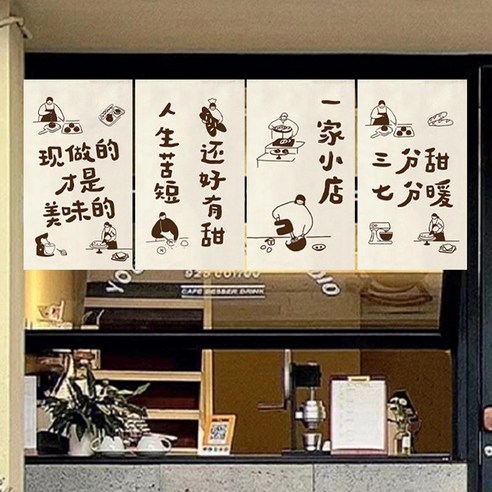 现做的
才是
美味的
人生苦短
还好有甜
一家小店
三分甜
七分暖
CAFE DESSER DRINK